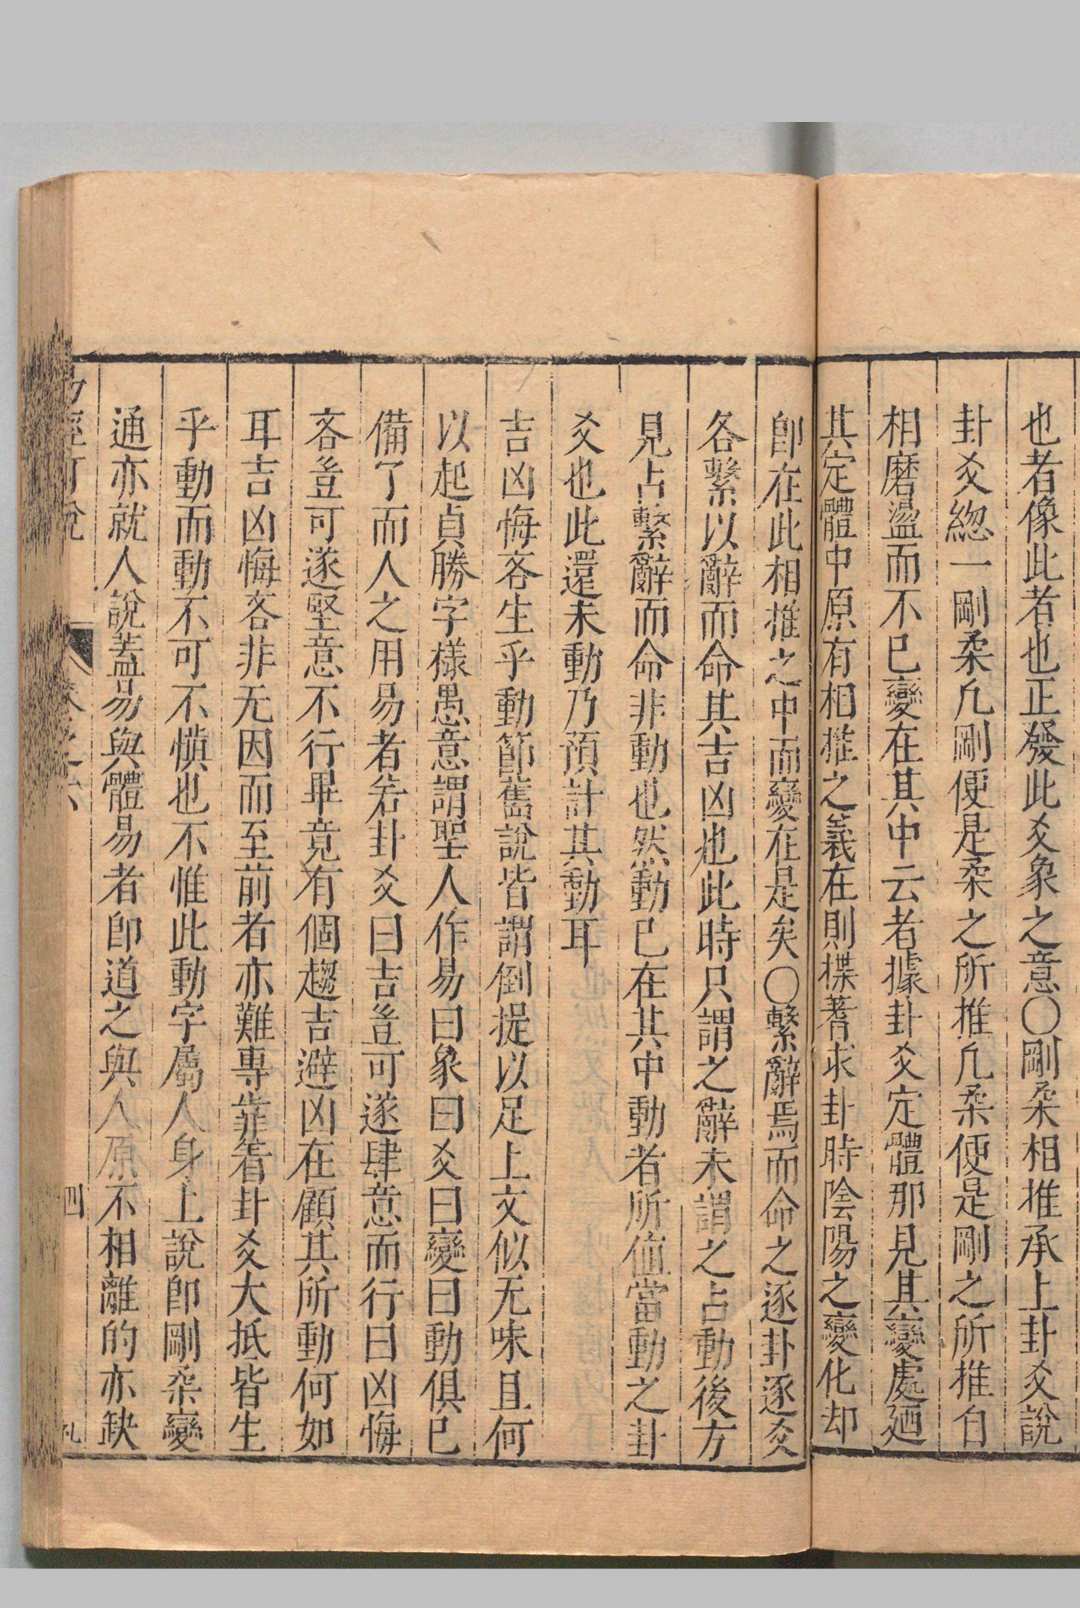 也者像此者也正發此爻象之意〇剛柔相推承上卦爻說
卦爻緫一剛柔凢剛便是柔之所推凢柔便是剛之所推自
相磨盪而不已變在其中云者據卦爻定體那見其變處廼
其定體中原有相推之義在則揲蓍求卦時陰陽之變化却
卽在此相推之中而變在是矣〇繫辭焉而命之逐卦逐爻
各繫以辭而命其吉凶也此時只謂之辭未謂之占動後方
見占繫辭而命非動也然動已在其中動者所值當動之卦
爻也此還未動乃預計其動耳
吉凶悔吝生乎動節舊說皆謂倒提以足上文似无味且何
以起貞勝字樣愚意謂聖人作易曰象曰爻曰變曰動俱已
備了而人之用易者若卦爻曰吉豈可遂肆意而行曰凶悔
吝豈可遂堅意不行畢竟有個趨吉避凶在顧其所動何如
耳吉凶悔吝非无因而至前者亦難專靠着卦爻大抵皆生
乎動而動不可不慎也不惟此動字屬人身上說卽剛柔變
通亦就人說蓋易與體易者卽道之與人原不相離的亦缺
易經可說
卷之六
四